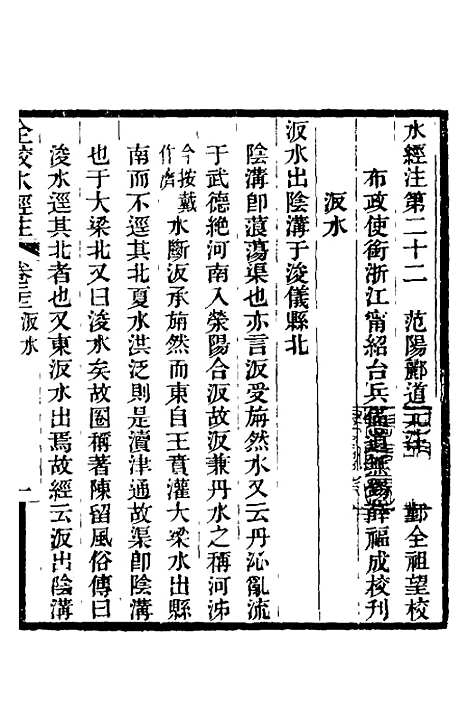 水經注第二十二　范陽酈道元注　鄞全祖望校
布政使銜浙江甯紹台兵備道無錫薛福成校刊
汳水
汳水出陰溝于浚儀縣北
陰溝卽蒗蕩渠也亦言汳受旃然水又云丹沁亂流
于武德絕河南入滎陽合汳故汳兼丹水之稱河泲
今按戴作濟水斷汳承旃然而東自王賁灌大梁水出縣
南而不逕其北夏水洪泛則是瀆津通故渠卽陰溝
也于大梁北又曰浚水矣故圈稱著陳留風俗傳曰
浚水逕其北者也又東汳水出焉故經云汳出陰溝
全校水經注　卷二十三　汳水　一